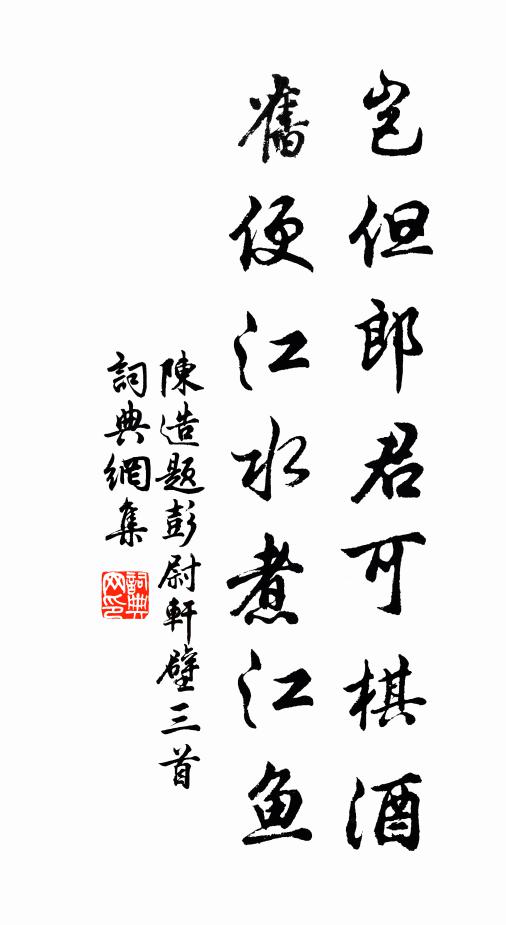 岂但郎君可棋酒
舊便江水煮江鱼
陳造题彭尉軒壁三首
詞典網集
詞典网印